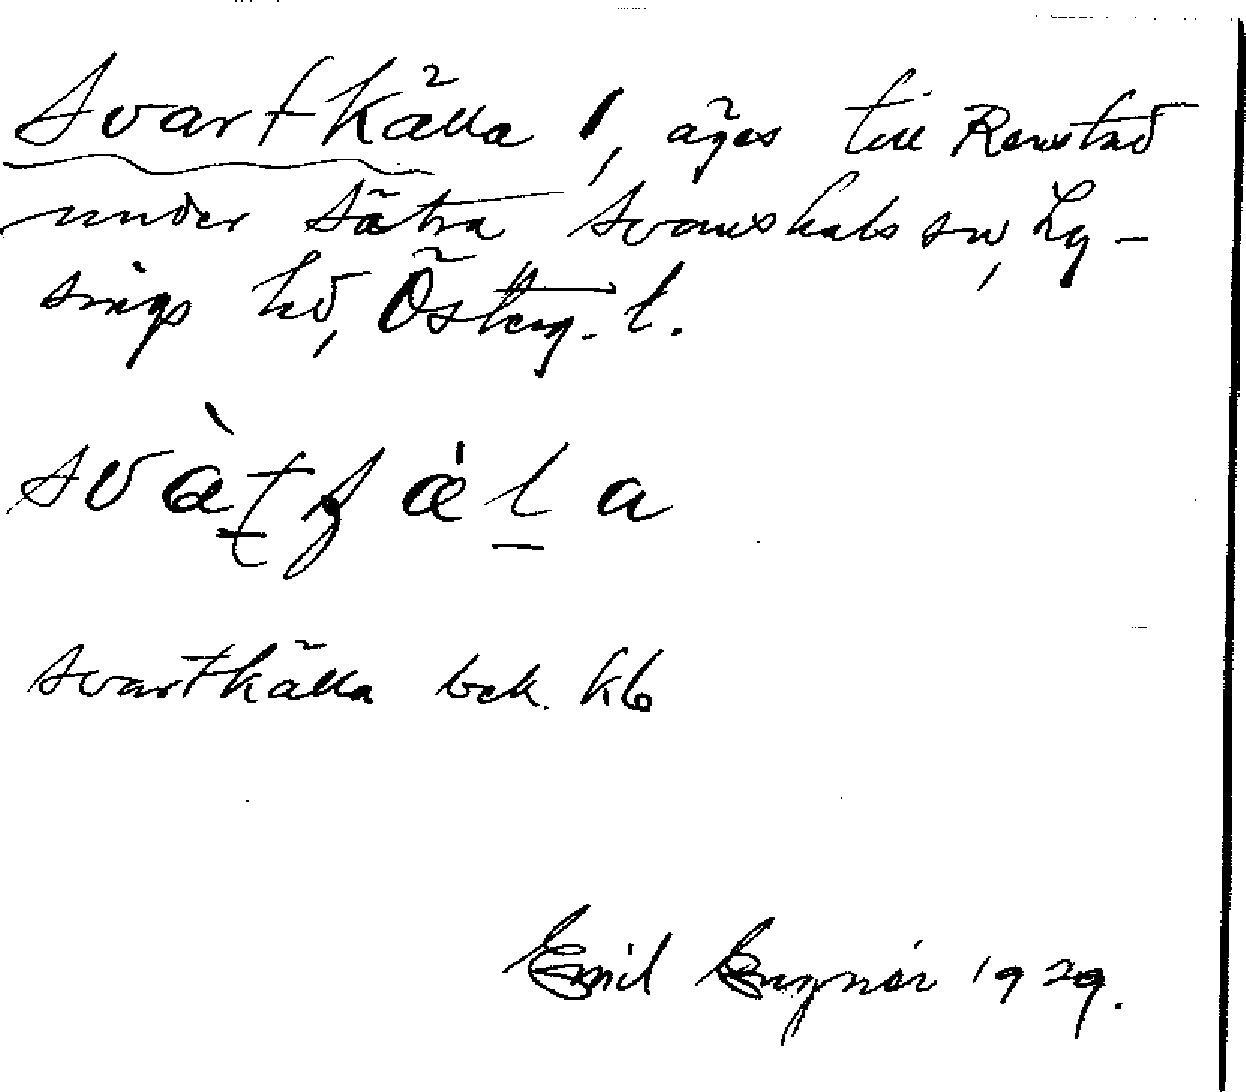 Svartkälla l, äges till Renstad
under Sätra Svanshals sn, Ly-
sings hd, Österg. l.
svartkälla bck. kb
Emil Engnér 1929.